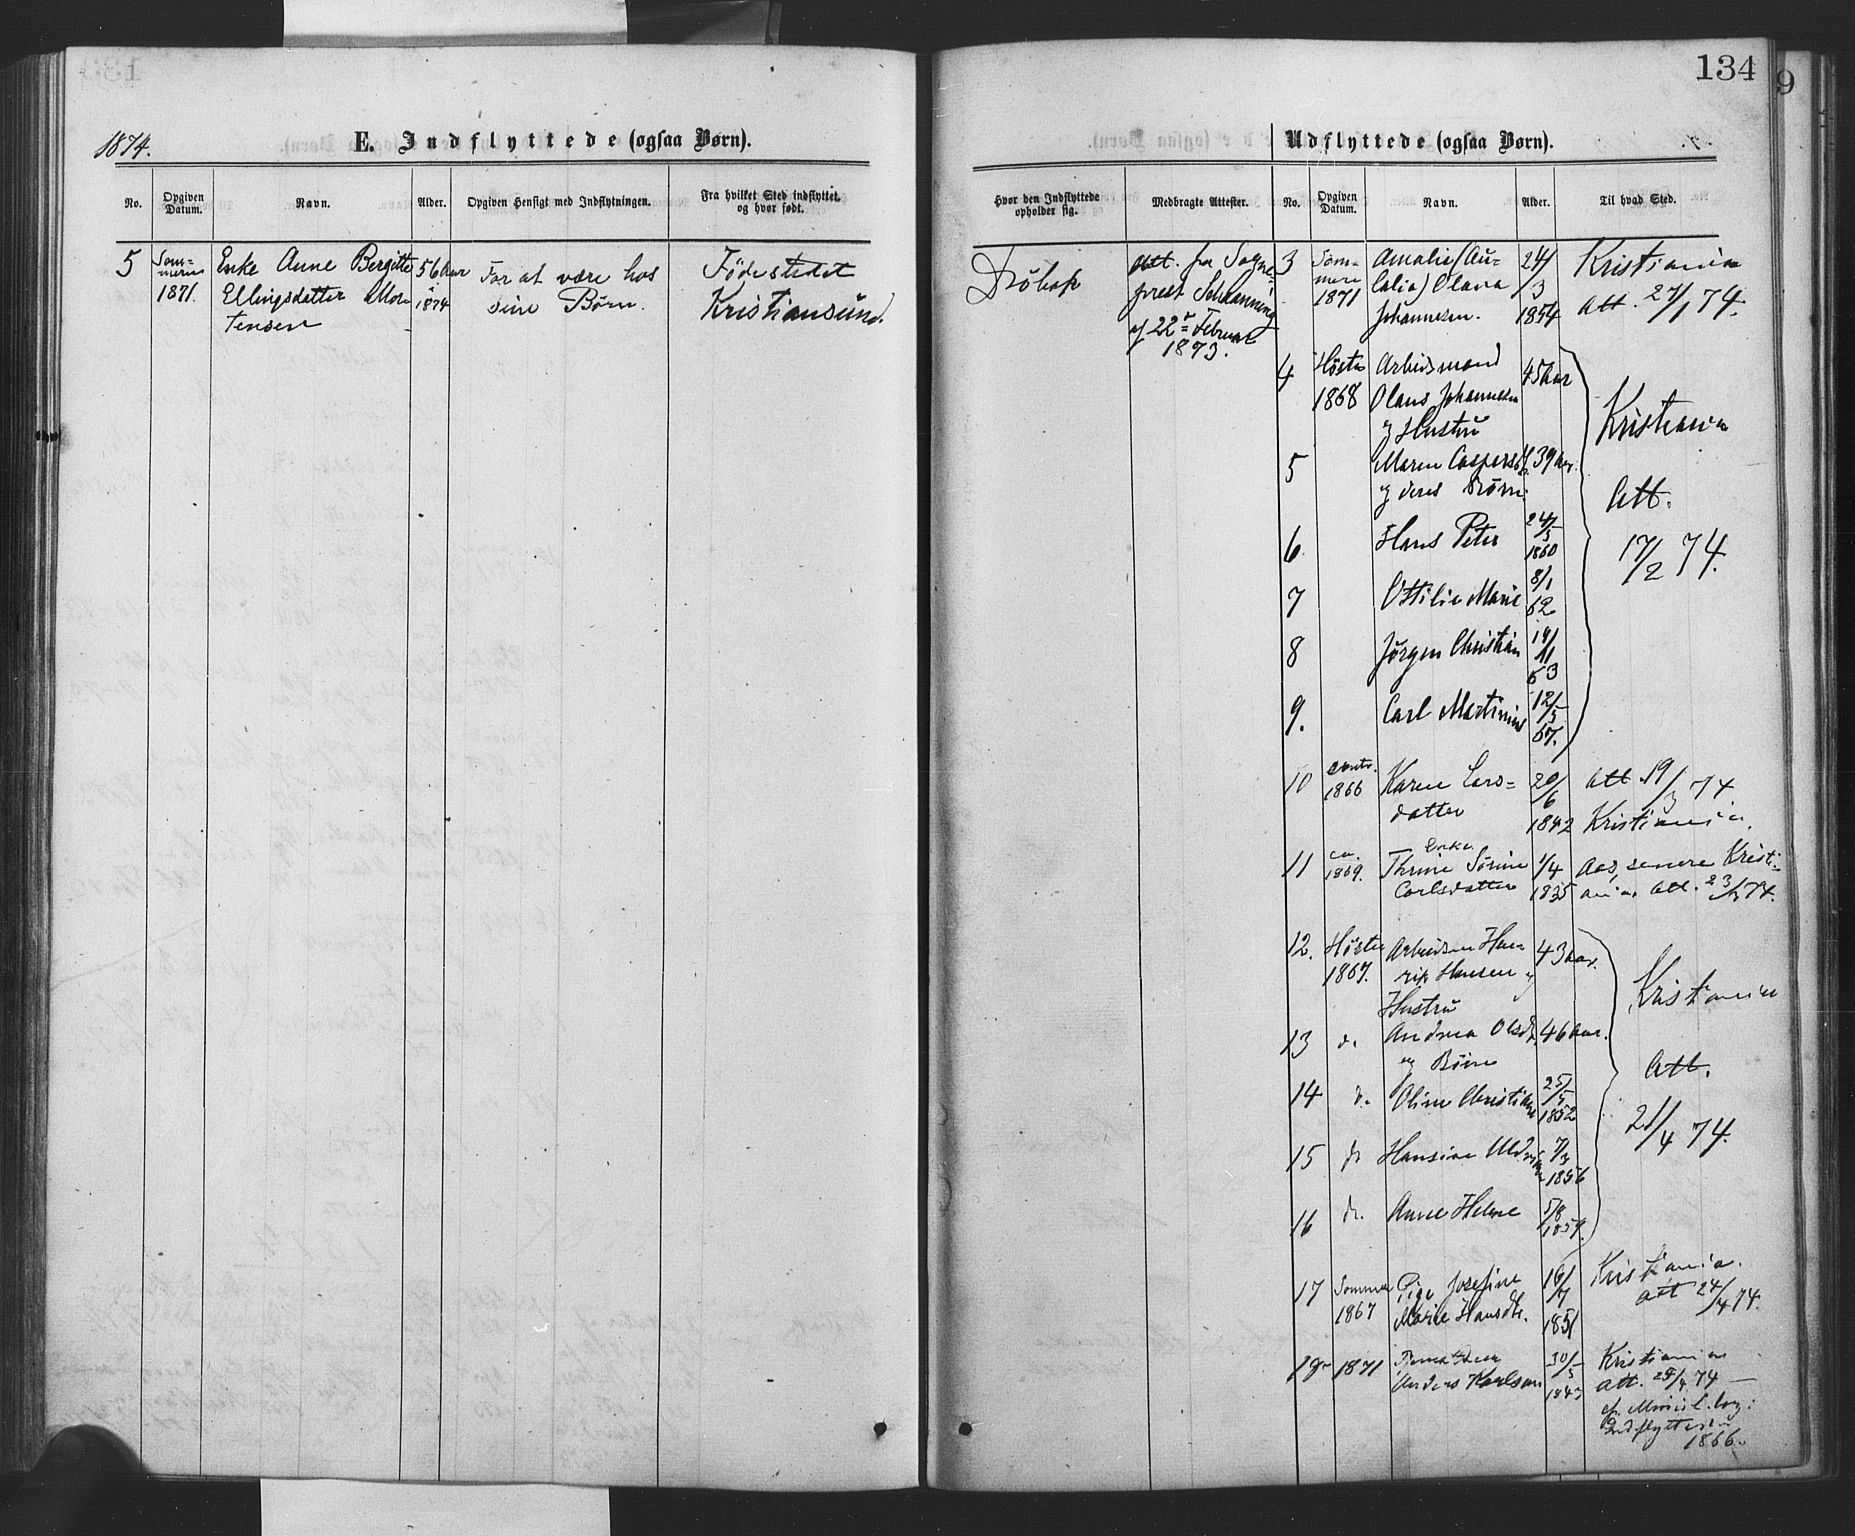 134
9
1874.
E. Indflyttede (ogsaa Børn).
Udflyttede (ogsaa Børn).
No.
Opgiven Datum.
Navn.
Alder.
Opgiven Hensigt med Indflytningen.
Fra hvilket Sted indflyttet.
og hvor født.
Hvor den Indflyttede
opholder sig.
Medbragte Attester.
No.
Opgiven Datum.
Navn.
Alder.
Til hvad Sted.
5 Som-
meren
1871.
Enke Anne Bergitte
Ellingsdatter Mor-
tensen
56 Aar
1874
For at være hos
sine Børn.
Fødestedet
Kristiansund.
Drøbak
att. fra Sogne-
prest Schanning
af 22de Februar
1873.
3 Som-
mere
1871
Amalia (Au-
lalia) Olava
Johannesen.
24/3
1854
Kristiania
att. 27/1 74.
4 Høsten
1868
Arbeidsmand
Olaus Johannesen
og Hustru
45 Aar
5 Maren Caspersd. 39 Aar.
og deres Børn:
6 Hans Peter 24/3
1860
7 Ottilie Marie 8/1
62
8 Jørgen Christian 19/11
63
9. Carl Martinius 12/5
67.
Kristiania
Att.
17/2 74.
10
1866
Karen Lars-
datter
20/6
1842
att 19/3 74
Kristiania.
11 ca.
1869.
Enke
Thrine Sørine
Carlsdatter
1/4
1835
Aas, senere Kristi-
ania. att. 23/3 74.
12. Høsten
1867.
Arbeidsm Hen
rik Hansen og
Hustru
43 aar.
13 do Andrea Olsdtr. 46 Aar.
og Børn
14 do Oline Christiane 25/5
1852
15 do Hansine 7/3
1856
16 do. Anne Helene 5/8
1859.
Kristiania
Att.
21/4 74.
17 Sommer
1867
Pige Josefine
Marie Hansdtr.
16/7
1851
Kristiania.
att 24/4 74.
18 1871
Anders Karlsen
30/5
1843
Kristiania
att. 28/4 74
cf. Minist. bog:
Indflyttede
1866.